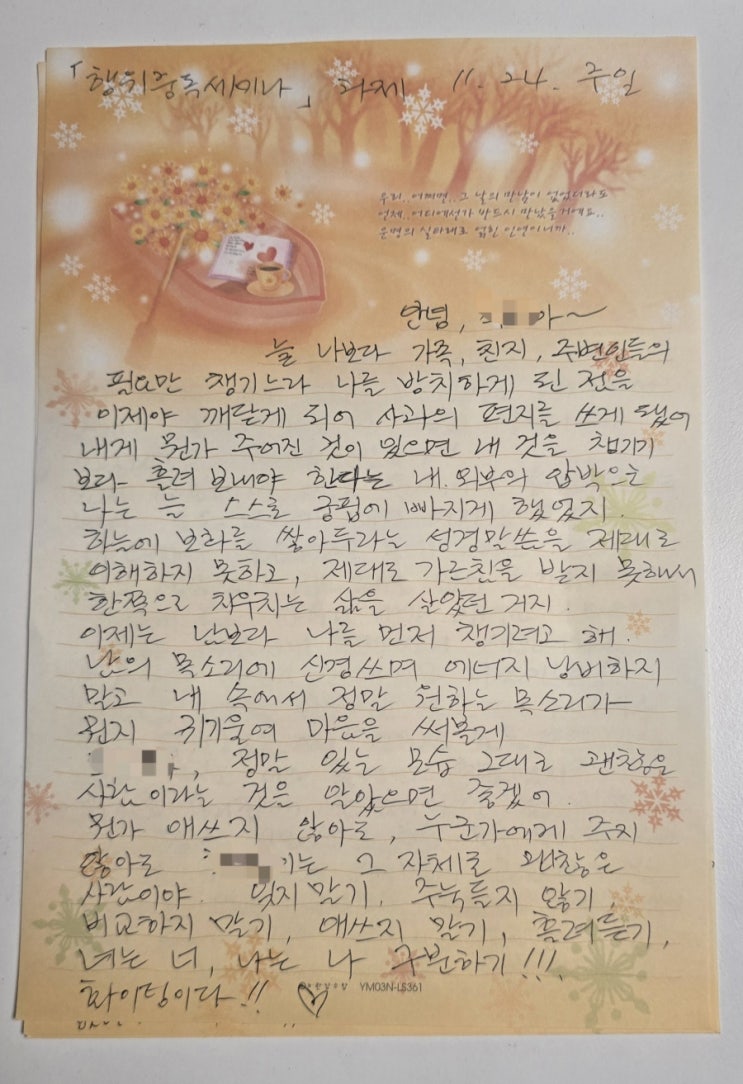 「행위중독세미나」 과제 11. 24. 주일
우리..어쩌면..그 날의 만남이 없었더라도
언제..어디에선가 반드시 만났을거예요..
운명의 실타래로 얽힌 인연이니까..
안녕, 아~
늘 나보다 가족, 친지, 주변인들의
필요만 챙기느라 나를 방치하게 된 것을
이제야 깨닫게 되어 사과의 편지를 쓰게 됐어
내게 뭔가 주어진 것이 있으면 내 것을 챙기기
보다 흘려 보내야 한다는 내.외부의 압박으로
나는 늘 스스로 궁핍에 빠지게 했었지.
하늘에 보화를 쌓아두라는 성경말씀을 제대로
이해하지 못하고, 제대로 가르침을 받지 못해서
한쪽으로 치우치는 삶을 살았던 거지.
이제는 남보다 나를 먼저 챙기려고 해.
남의 목소리에 신경쓰며 에너지 낭비하지
말고 내 속에서 정말 원하는 목소리가
뭔지 귀기울여 마음을 써볼게
, 정말 있는 모습 그대로 괜찮은
사람이라는 것을 알았으면 좋겠어.
뭔가 애쓰지 않아도, 누군가에게 주지
않아도 는 그 자체로 괜찮은
사람이야. 잊지말기, 주눅들지 않기,
비교하지 말기, 애쓰지 말기, 흘려듣기,
너는 너, 나는 나 구분하기!!!
화이팅이다!! ♡
YM03N-LS361